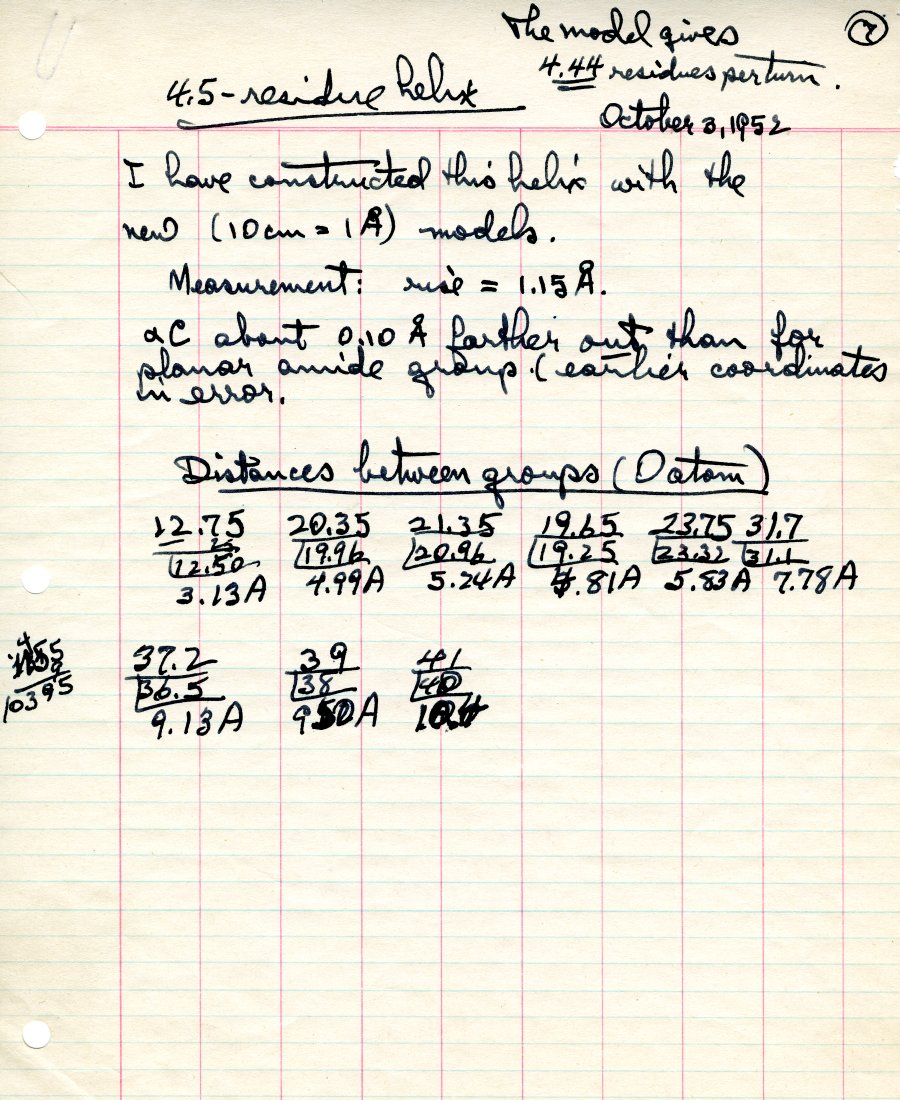 The model gives
7
4.44 residues per turn.
4.5-residue helix
October 3, 1952
I have constructed this helix with the
new (10 cm = 1 Å) models.
Measurement: rise = 1.15 Å.
αC about 0.10 Å farther out than for
planar amide group. (earlier coordinates
in error.
Distances between groups (O atom)
12.75 20.35 21.35 19.65 23.75 31.7
25
12.50 19.96 20.96 19.25 23.32 31.1
3.13A 4.99A 5.24A 4.81A 5.83A 7.78A
37.2 39 41
36.5 38 40
10395
9.13A 9.50A